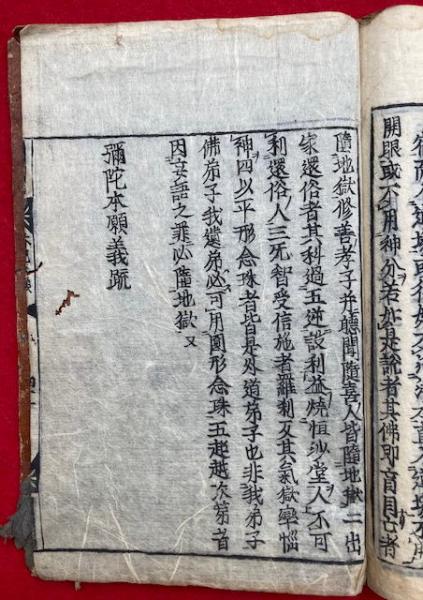 開眼或不用神分若如是說者其佛即盲目占者
墮地獄修善孝子并聽聞隨喜人皆墮地獄二出
家還俗者其科過五逆設利益燒恒沙堂人不可
利還俗人三死智受信施者羅刹又其氣獄卒惱
神四以平形念珠者皆是外道弟子也非我弟子
佛弟子我遺弟必可用圓形念珠五超越次第者
因妄語之罪必墮地獄又
彌陀本願義疏